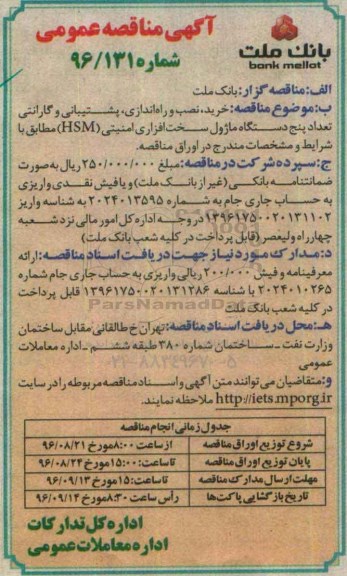 آگهی مناقصه عمومی
شماره ۹۶/۱۳۱
بانک ملت
bank mellat
الف: مناقصه گزار: بانک ملت
ب: موضوع مناقصه: خرید، نصب و راه‌اندازی، پشتیبانی و گارانتی
تعداد پنج دستگاه ماژول سخت‌افزاری امنیتی (HSM) مطابق با
شرایط و مشخصات مندرج در اوراق مناقصه.
ج: سپرده شرکت در مناقصه: مبلغ ۲۵۰/۰۰۰/۰۰۰ ریال به صورت
ضمانتنامه بانکی (غیر از بانک ملت) و یا فیش نقدی واریزی
به حساب جاری جام به شماره ۲۰۲۴۰۱۳۵۹۵ به شناسه واریز
۱۳۹۶۱۷۵۰۰۲۰۱۳۱۱۰۲ در وجه اداره کل امور مالی نزد شعبه
چهارراه ولیعصر (قابل پرداخت در کلیه شعب بانک ملت)
د: مدارک مورد نیاز جهت دریافت اسناد مناقصه: ارائه
معرفینامه و فیش ۲۰۰/۰۰۰ ریالی واریزی به حساب جاری جام شماره
۲۰۲۴۰۱۰۲۶۵ با شناسه ۱۳۹۶۱۷۵۰۰۲۰۱۳۱۲۸۶ قابل پرداخت
در کلیه شعب بانک ملت
هـ: محل دریافت اسناد مناقصه: تهران خ طالقانی مقابل ساختمان
وزارت نفت - ساختمان شماره ۳۸۰ طبقه ششم - اداره معاملات
عمومی
و: متقاضیان می‌توانند متن آگهی و اسناد مناقصه مربوطه را در سایت
http://iets.mporg.ir ملاحظه نمایند.
جدول زمانی انجام مناقصه
شروع توزیع اوراق مناقصه از ساعت ۸:۰۰ مورخ ۹۶/۰۸/۲۱
پایان توزیع اوراق مناقصه تا ساعت ۱۵:۰۰ مورخ ۹۶/۰۸/۲۴
مهلت ارسال مدارک مناقصه تا ساعت ۱۵ مورخ ۹۶/۰۹/۱۳
تاریخ بازگشایی پاکت‌ها رأس ساعت ۸:۳۰ مورخ ۹۶/۰۹/۱۴
اداره کل تدارکات
اداره معاملات عمومی
ParsNamadData